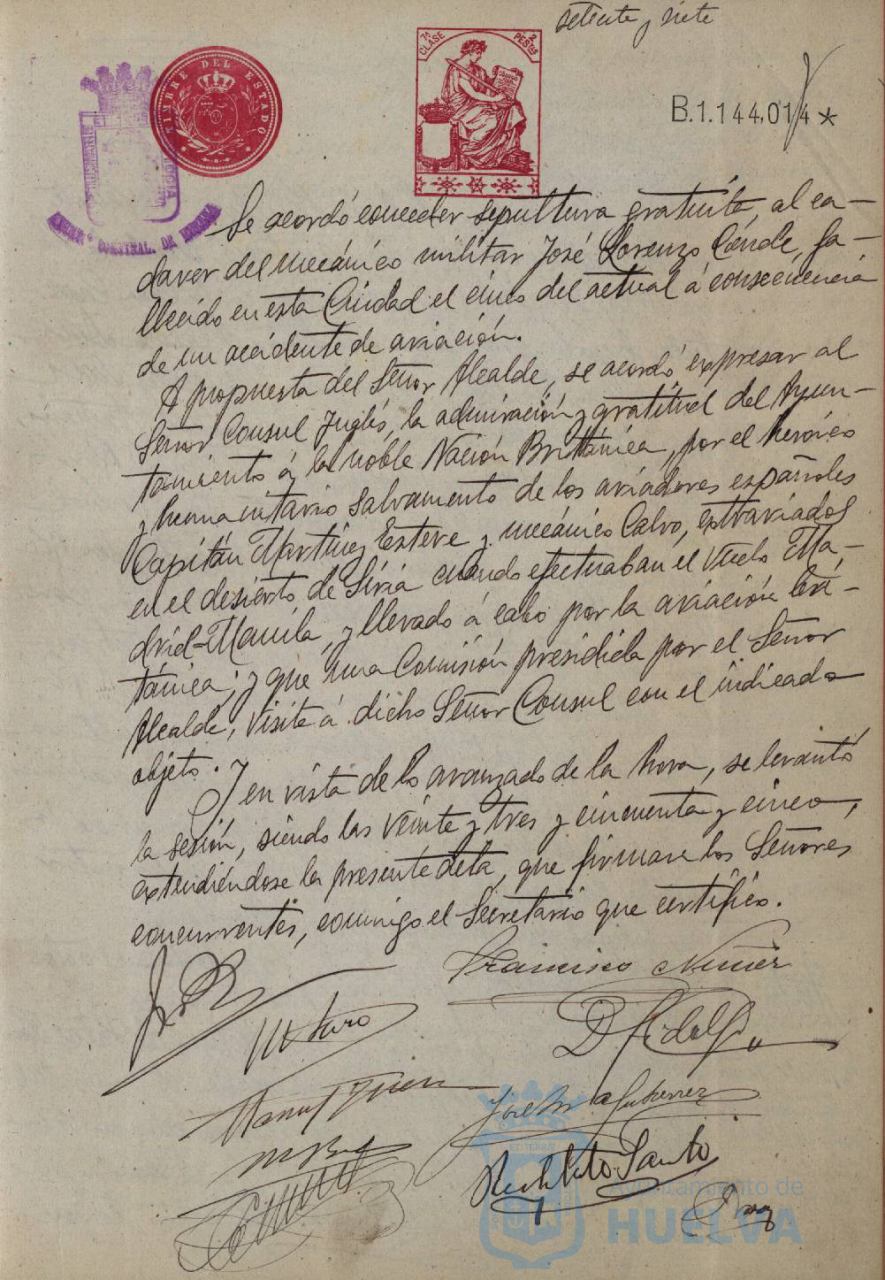 setenta y siete
TIMBRE DEL ESTADO
7ª CLASE
2 PESTAS
B.1.144,014 *
Se acordó conceder sepultura gratuita, al ca-
daver del mecánico militar José Lorenzo Cónde, fa-
llecido en esta Ciudad el cinco del actual á consecuencia
de un accidente de aviación.
A propuesta del Señor Alcalde, se acordó expresar al
Señor Consul Inglés, la admiración y gratitud del Ayun-
tamiento á la noble Nación Británica, por el heróico
y humanitario salvamento de los aviadores españoles
Capitán Martínez Esteve y mecánico Calvo, extraviados
en el desierto de Siria cuando efectuaban el vuelo Ma-
drid-Manila, y llevado á cabo por la aviación bri-
tánica; y que una Comisión presidida por el Señor
Alcalde, visite á dicho Señor Consul con el indicado
objeto.
Y en vista de lo avanzado de la hora, se levantó
la sesión, siendo las veinte y tres y cincuenta y cinco,
extendiéndose la presente acta, que firman los Señores
concurrentes, conmigo el Secretario que certifico.
Francisco
D. Hidalgo
José Mª Gutierrez
Ayuntamiento de
HUELVA